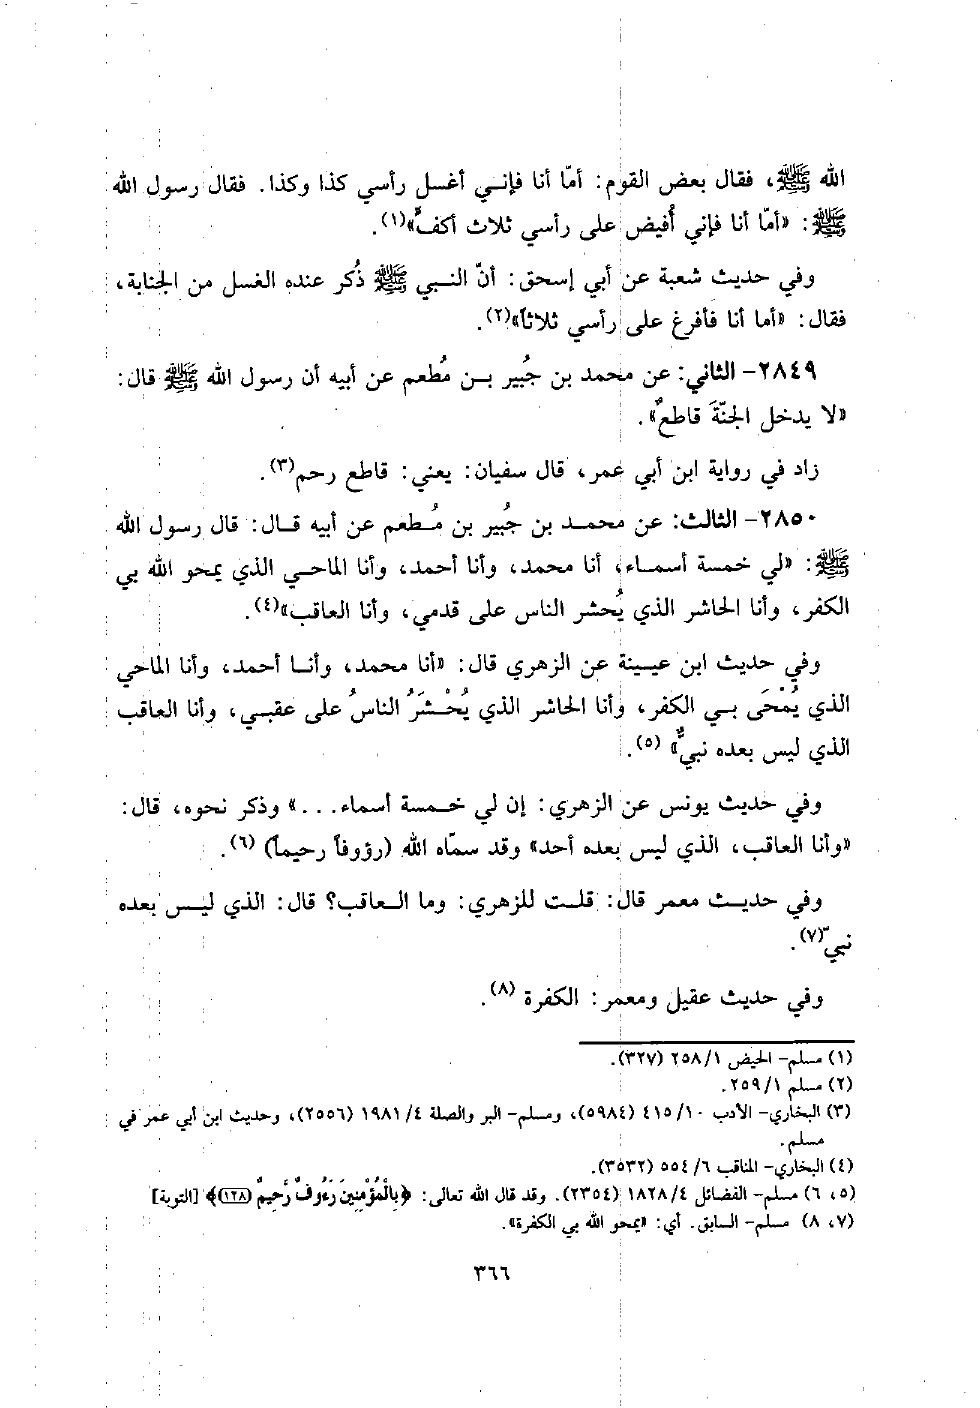 الله ﷺ، فقال بعض القوم: أمّا أنا فإنـي أغسـل رأسي كذا وكذا. فقال رسول الله
ﷺ: «أمّا أنا فإني أُفيض على رأسي ثلاث أكفٍّ»(١).
وفي حديث شعبة عن أبي إسحق: أنّ النـبي ﷺ ذُكر عنده الغسل من الجنابة،
فقال: «أما أنا فأفرغ على رأسي ثلاثاً»(٢).
٢٨٤٩- الثاني: عن محمد بن جُبير بـن مُطعم عن أبيه أن رسول الله ﷺ قال:
«لا يدخل الجنّةَ قاطعٌ».
زاد في رواية ابن أبي عمر، قال سفيان: يعني: قاطع رحم(٣).
٢٨٥٠- الثالث: عن محمـد بن جُبير بن مُـطعم عن أبيه قـال: قال رسول الله
ﷺ: «لي خمسة أسمـاء، أنا محمد، وأنا أحمد، وأنا الماحـي الذي يمحو الله بي
الكفر، وأنا الحاشر الذي يُحشر الناس على قدمي، وأنا العاقب»(٤).
وفي حديث ابن عيـينة عن الزهري قال: «أنا محمد، وأنـا أحمد، وأنا الماحي
الذي يُمْحَى بـي الكفر، وأنا الحاشر الذي يُحْـشَرُ الناسُ على عقبـي، وأنا العاقب
الذي ليس بعده نبيٌّ» (٥).
وفي حديث يونس عن الزهري: إن لي خـمسة أسماء...» وذكر نحوه، قال:
«وأنا العاقب، الذي ليس بعده أحد» وقد سمّاه الله (رؤوفاً رحيماً) (٦).
وفي حديـث معمر قال: قلـت للزهري: وما الـعاقب؟ قال: الذي ليـس بعده
نبيّ(٧).
وفي حديث عقيل ومعمر: الكفرة (٨).
(١) مسلم- الحيض ١/ ٢٥٨ (٣٢٧).
(٢) مسلم ١/ ٢٥٩.
(٣) البخاري- الأدب ١٠/ ٤١٥ (٥٩٨٤)، ومسلم- البر والصلة ٤/ ١٩٨١ (٢٥٥٦)، وحديث ابن أبي عمر في
مسلم.
(٤) البخاري- المناقب ٦/ ٥٥٤ (٣٥٣٢).
(٥، ٦) مسلم- الفضائل ٤/ ١٨٢٨ (٢٣٥٤). وقد قال الله تعالى: ﴿بِالْمُؤْمِنِينَ رَءُوفٌ رَّحِيمٌ (١٢٨)﴾ [التوبة]
(٧، ٨) مسلم- السابق. أي: «يمحو الله بي الكفرة».
٣٦٦